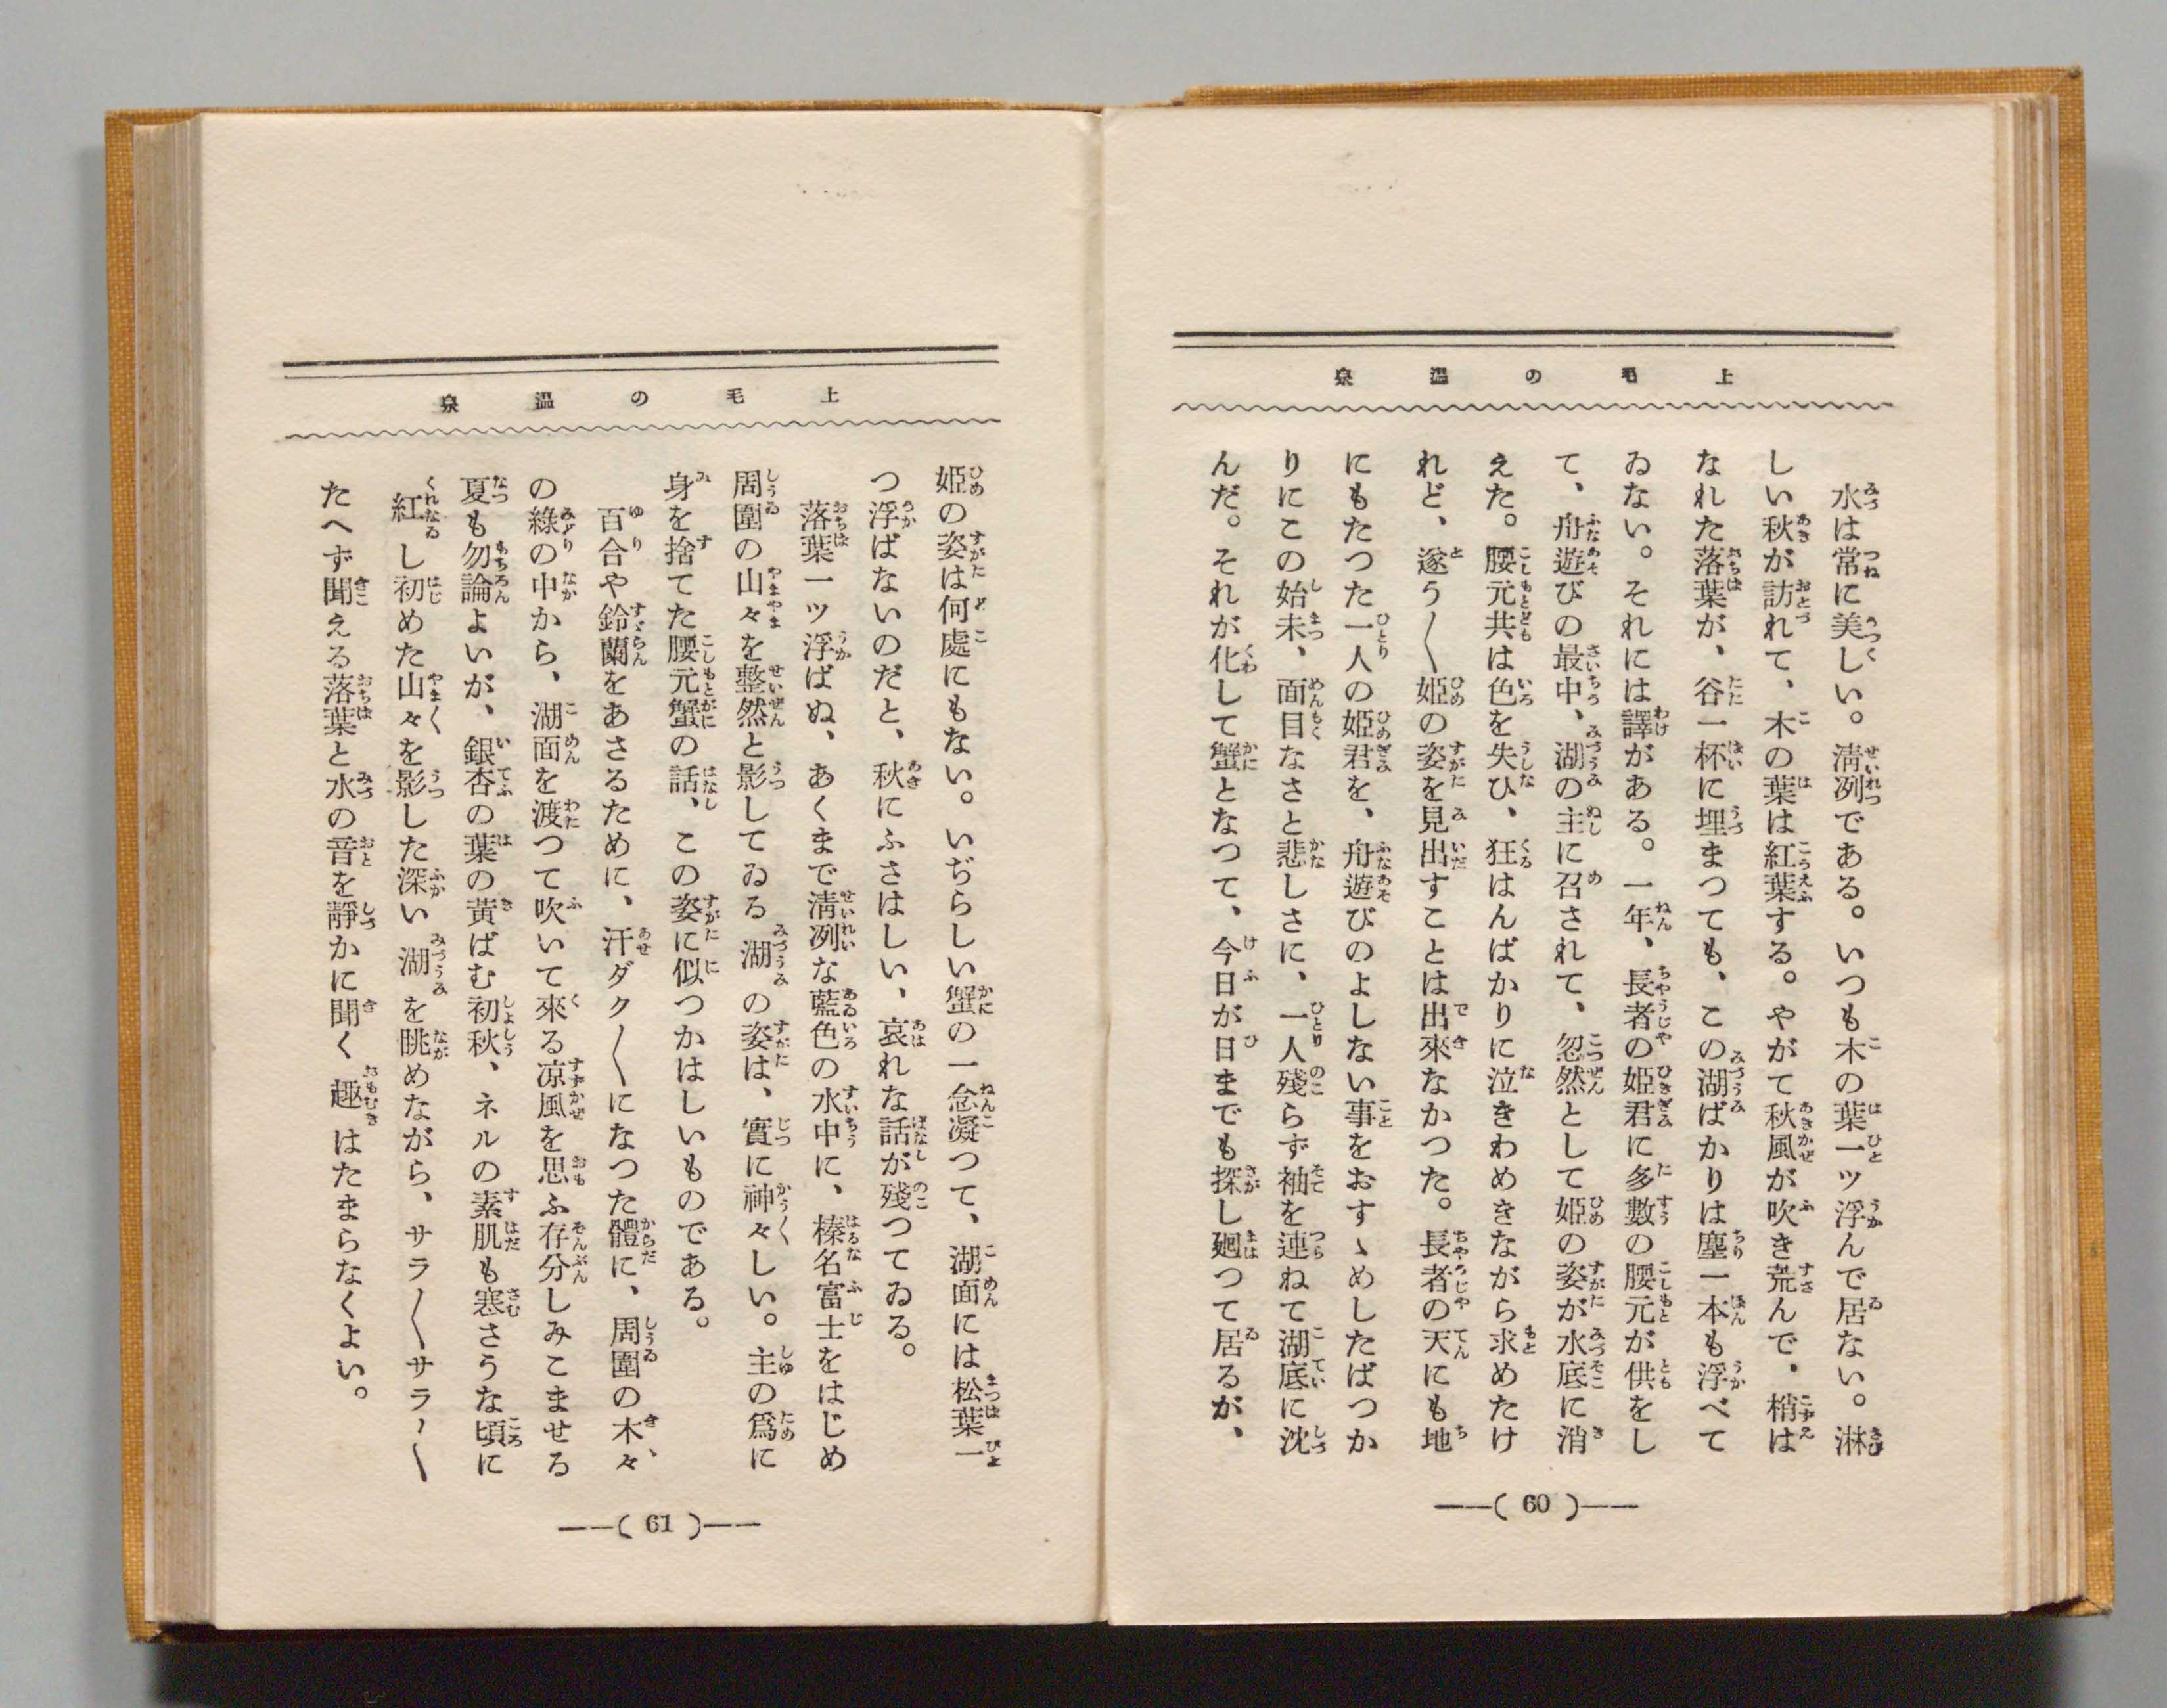 上毛の温泉
水は常に美しい。淸冽である。いつも木の葉一ツ浮んで居ない。淋
しい秋が訪れて、木の葉は紅葉する。やがて秋風が吹き荒んで、梢は
なれた落葉が、谷一杯に埋まつても、この湖ばかりは塵一本も浮べて
ゐない。それには譯がある。一年、長者の姬君に多數の腰元が供をし
て、舟遊びの最中、湖の主に召されて、忽然として姬の姿が水底に消
えた。腰元共は色を失ひ、狂はんばかりに泣きわめきながら求めたけ
れど、遂う〳〵姬の姿を見出すことは出來なかつた。長者の天にも地
にもたつた一人の姬君を、舟遊びのよしない事をおすゝめしたばつか
りにこの始末、面目なさと悲しさに、一人殘らず袖を連ねて湖底に沈
んだ。それが化して蟹となつて、今日が日までも探し廻つて居るが、
—(60)—
上毛の温泉
姬の姿は何處にもない。いぢらしい蟹の一念凝つて、湖面には松葉一
つ浮ばないのだと、秋にふさはしい、哀れな話が殘つてゐる。
落葉一ツ浮ばぬ、あくまで淸冽な藍色の水中に、榛名富士をはじめ
周圍の山々を整然と影してゐる湖の姿は、實に神々しい。主の爲に
身を捨てた腰元蟹の話、この姿に似つかはしいものである。
百合や鈴蘭をあさるために、汗ダク〳〵になつた體に、周圍の木々
の綠の中から、湖面を渡つて吹いて來る凉風を思ふ存分しみこませる
夏も勿論よいが、銀杏の葉の黃ばむ初秋、ネルの素肌も寒さうな頃に
紅し初めた山々を影した深い湖を眺めながら、サラ〳〵サラ〳〵
たへず聞える落葉と水の音を靜かに聞く趣はたまらなくよい。
—(61)—